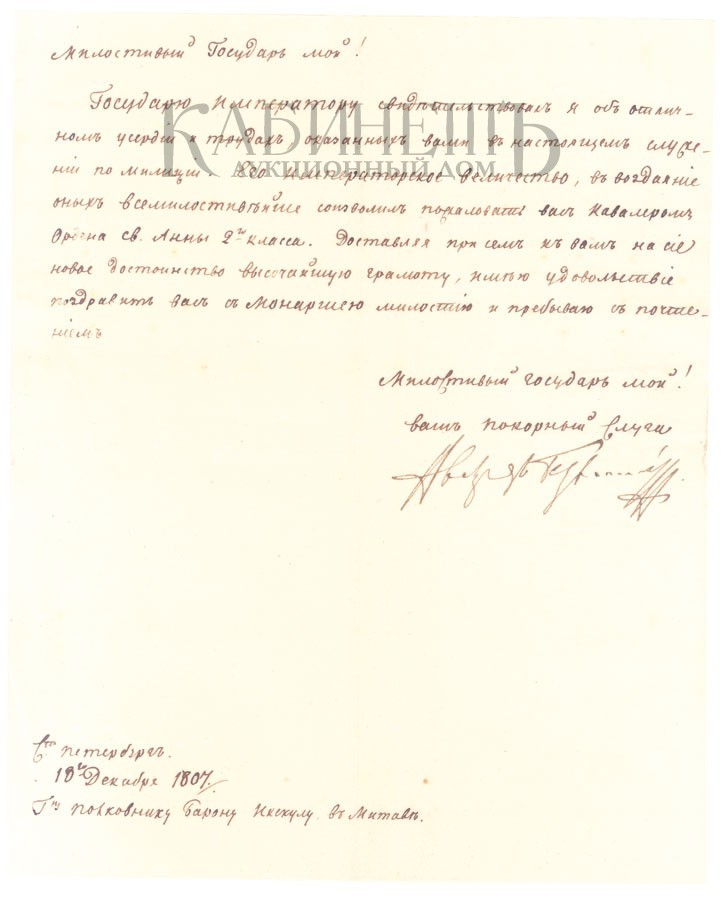 Милостивый Государь мой!
Государю Императору свидѣтельствовалъ я объ отлич-
номъ усердіи и трудахъ оказанныхъ вами въ настоящемъ служе-
ніи по милиціи. Его императорское величество, въ воздаяніе
оныхъ всемилостивѣйше соизволилъ пожаловать васъ Кавалеромъ
Ордена св. Анны 2го класса. Доставляя при семъ къ вамъ на сіе
новое достоинство высочайшую грамоту, имѣю удовольствіе
поздравить васъ съ Монаршею милостію и пребываю съ почте-
ніемъ
Милостивый государь мой!
вамъ покорный слуга
КАБИНЕТЪ
АУКЦИОННЫЙ ДОМ
Стъ петербургъ.
18го Декабря 1807.
Гну полковнику Барону Икскулу въ Митавѣ.